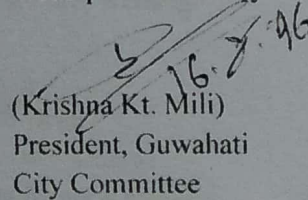 16.8.96
(Krishna Kt. Mili)
President, Guwahati
City Committee